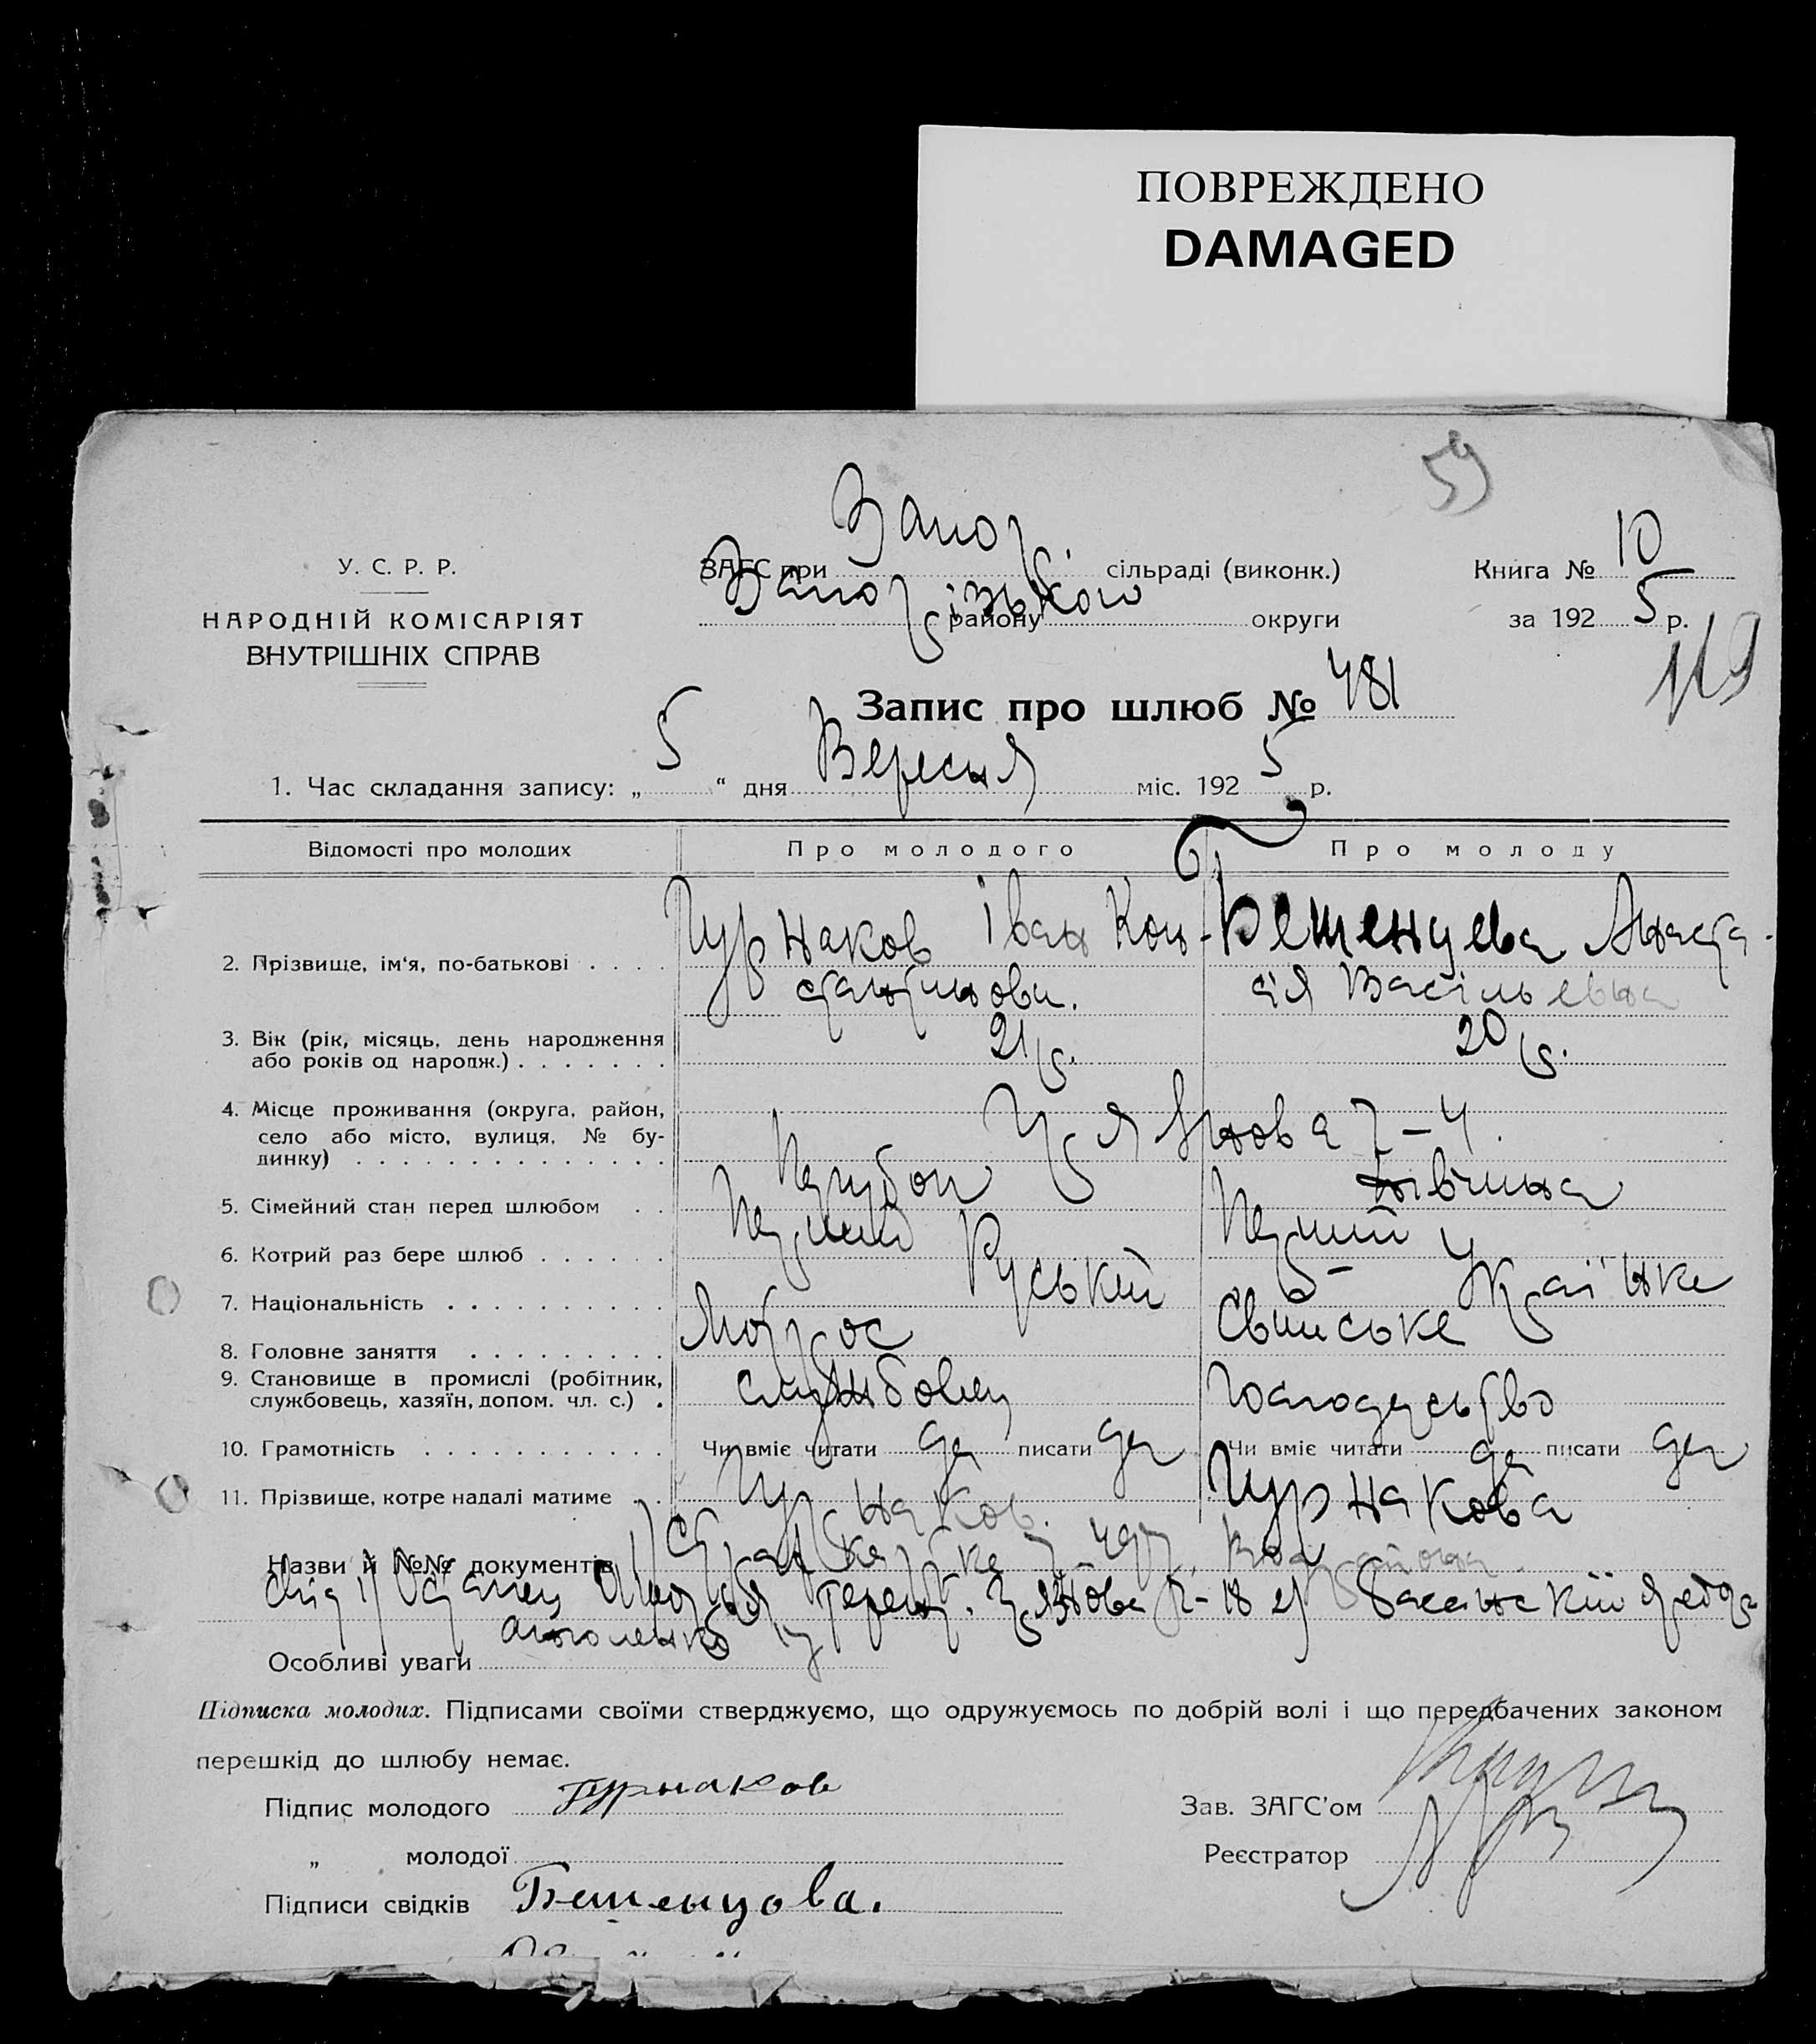 ПОВРЕЖДЕНО
DAMAGED
59
У. С. Р. Р.
НАРОДНІЙ КОМІСАРІЯТ
ВНУТРІШНІХ СПРАВ
ЗАГС при Запор. сільраді (виконк.)
Запорізького району округи
Книга № 10
за 1925 р.
119
Запис про шлюб № 481
1. Час складання запису: „ 5 “ дня Вересня міс. 1925 р.
Відомості про молодих Про молодого Про молоду
2. Прізвище, ім‘я, по-батькові . . . . Пурнаков Іван Кон- Бешенцева Анаста-
стантинови. сія Васильевна
3. Вік (рік, місяць, день народження
або років од народж.) . . . . . . . 21 р. 20 р.
4. Місце проживання (округа, район,
село або місто, вулиця, № бу-
динку) . . . . . . . . . . . . . . 7–4.
5. Сімейний стан перед шлюбом . . Парубок дівчина
6. Котрий раз бере шлюб . . . . . . Перший Перший
7. Національність . . . . . . . . . . Руський Українка
8. Головне заняття . . . . . . . . . Матрос Свинське
9. Становище в промислі (робітник,
службовець, хазяїн, допом. чл. с.) . службовец господарьство
10. Грамотність . . . . . . . . . . . Чи вміє читати да писати да Чи вміє читати да писати да
11. Прізвище, котре надалі матиме . . Пурнаков. Пурнакова
Назви й №№ документів
Особливі уваги
Підписка молодих. Підписами своїми стверджуємо, що одружуємось по добрій волі і що передбачених законом
перешкід до шлюбу немає.
Підпис молодого Пурнаков Зав. ЗАГС’ом
„ молодої Реєстратор
Підписи свідків Бешенцова.